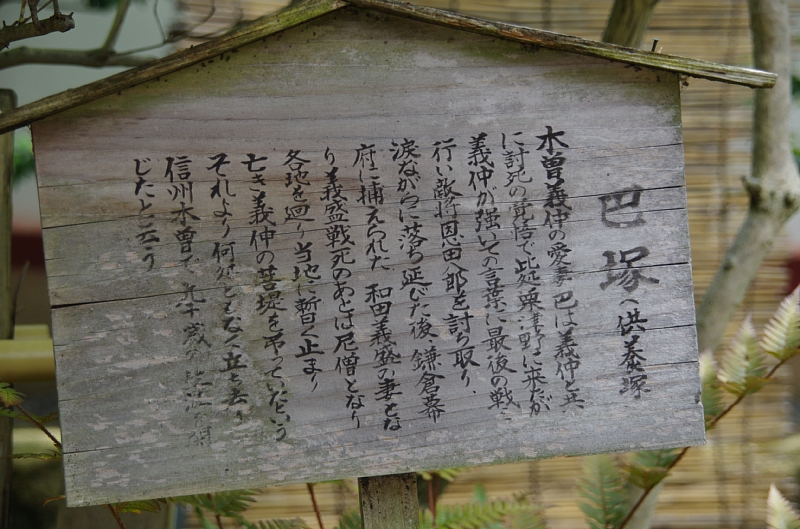 巴塚(供養塚
木曽義仲の愛妻 巴は義仲と共
に討死の覚悟で此処粟津野に来たが
義仲が強いての言葉に最後の戦
行い敵将恩田八郎を討ち取り、
涙ながらに落ち延びた後、鎌倉幕
府に捕えられた 和田義盛の妻とな
り義盛戦死のあとは尼僧となり
各地を廻り当地に暫く止まり
亡き義仲の菩提を弔っていたという
それより何処ともなく立ち去り
信州木曽で 九十歳の
じたと云う